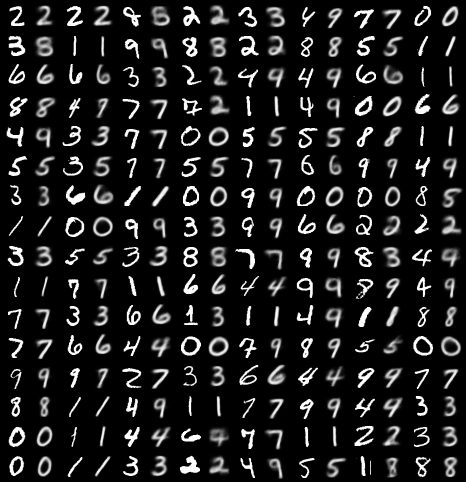 2 2 2 2 8 5 2 2 3 3 4 9 7 7 0 0
3 3 1 1 9 9 8 8 2 2 8 8 5 5 1 1
6 6 6 6 3 3 2 2 4 9 4 9 6 6 1 1
8 8 4 9 7 7 7 2 1 1 4 9 0 0 6 6
4 9 3 3 7 7 0 0 5 5 5 5 8 8 1 1
5 5 3 5 7 7 5 5 7 7 6 6 9 9 4 9
3 3 6 6 1 1 0 0 9 9 0 0 0 0 8 5
1 1 0 0 9 9 3 3 9 9 6 6 2 2 2 2
3 3 5 5 3 3 8 8 7 7 9 9 8 3 4 9
1 1 7 7 1 1 6 6 4 4 9 9 8 9 4 9
7 7 3 3 6 6 1 3 1 1 4 9 1 1 8 8
7 7 6 6 4 4 0 0 7 9 8 9 5 5 0 0
9 9 9 9 2 7 3 3 6 6 4 4 9 9 7 7
8 8 1 1 4 9 1 1 7 7 9 9 4 4 3 3
0 0 1 1 4 4 6 4 7 7 1 1 2 2 3 3
0 0 1 1 3 3 2 2 4 9 5 5 11 8 8 8